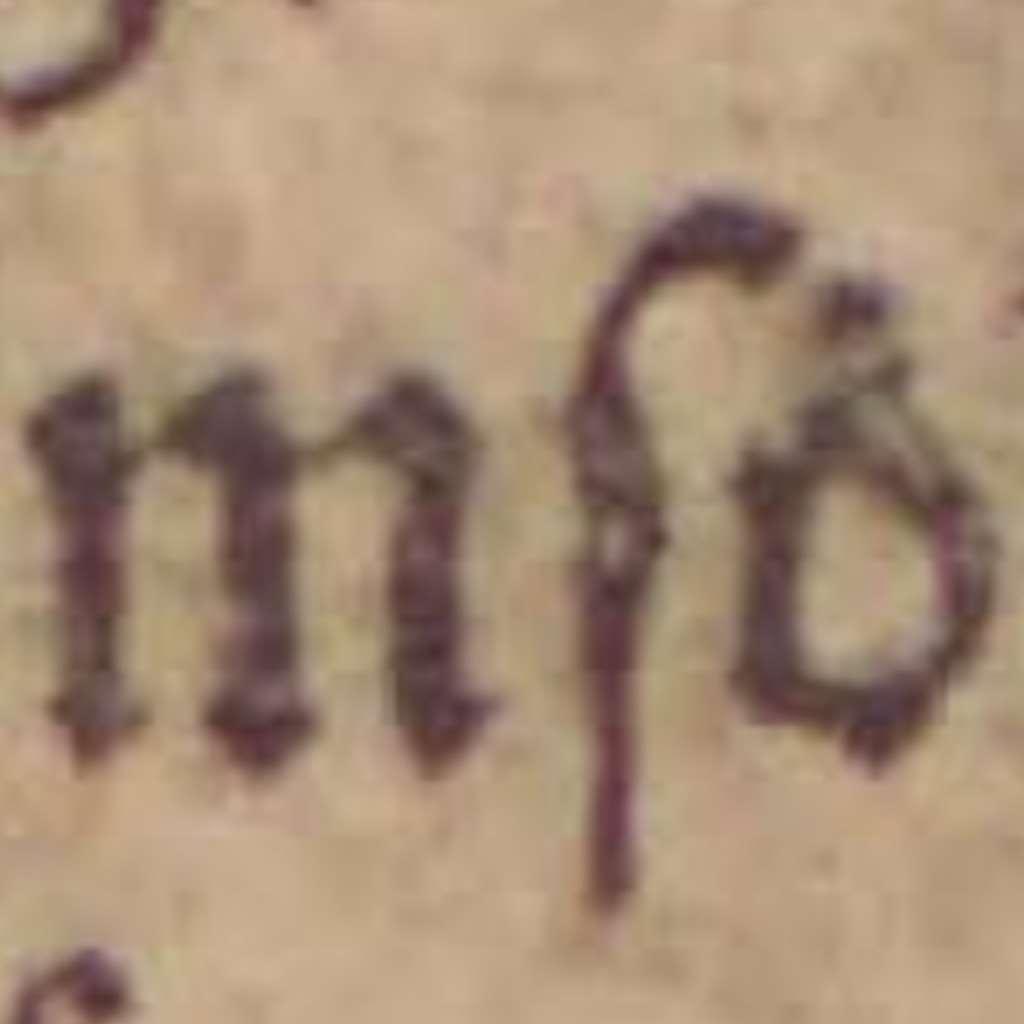 mſo